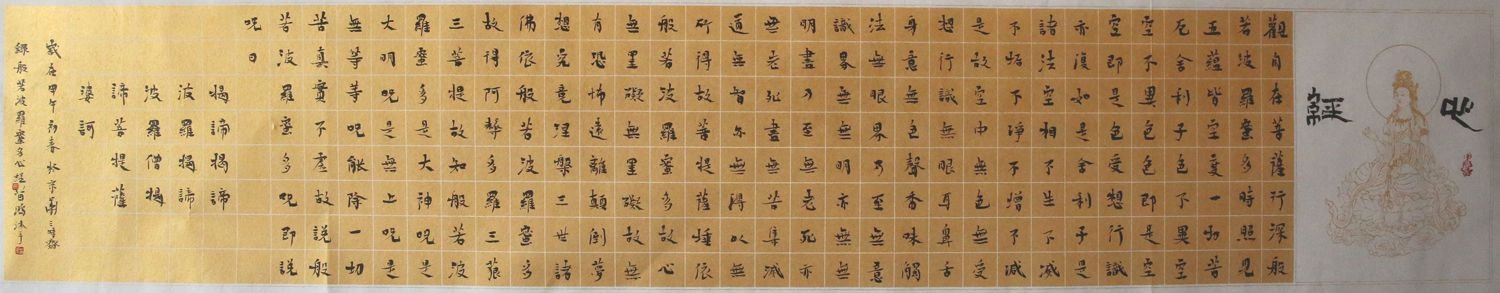 心經
觀自在菩薩行深般
若波羅蜜多時照見
五蘊皆空度一切苦
厄舍利子色不異空
空不異色色即是空
空即是色受想行識
亦復如是舍利子是
諸法空相不生不滅
不垢不淨不增不減
是故空中無色無受
想行識無眼耳鼻舌
身意無色聲香味觸
法無眼界乃至無意
識界無無明亦無無
明盡乃至無老死亦
無老死盡無苦集滅
道無智亦無得以無
所得故菩提薩埵依
般若波羅蜜多故心
無罣礙無罣礙故無
有恐怖遠離顛倒夢
想究竟涅槃三世諸
佛依般若波羅蜜多
故得阿耨多羅三藐
三菩提故知般若波
羅蜜多是大神呪是
大明呪是無上呪是
無等等呪能除一切
苦真實不虛故說般
若波羅蜜多呪即說
呪曰
揭諦揭諦
波羅揭諦
波羅僧揭
諦菩提薩
婆訶
歲在甲午初春於京
錄般若波羅蜜多心經 沐手